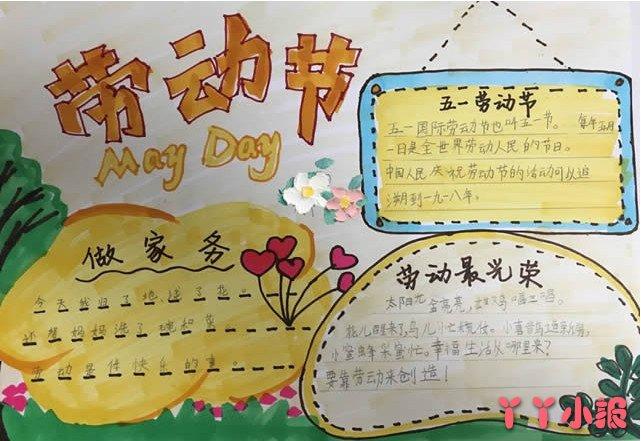 劳动节
May Day
五一劳动节
五一国际劳动节也叫五一节。 每年五月
一日是全世界劳动人民的节日。
中国人民庆祝劳动节的活动可以追
溯到一九一八年。
做家务
今天我扫了地、浇了花。
还帮妈妈洗了碗和菜
劳动是件快乐的事。
劳动最光荣
太阳光金亮亮，雄鸡唱三唱。
花儿醒来了，鸟儿忙梳妆。小喜鹊造新房，
小蜜蜂采蜜忙。幸福生活从哪里来？
要靠劳动来创造！
丫丫小报